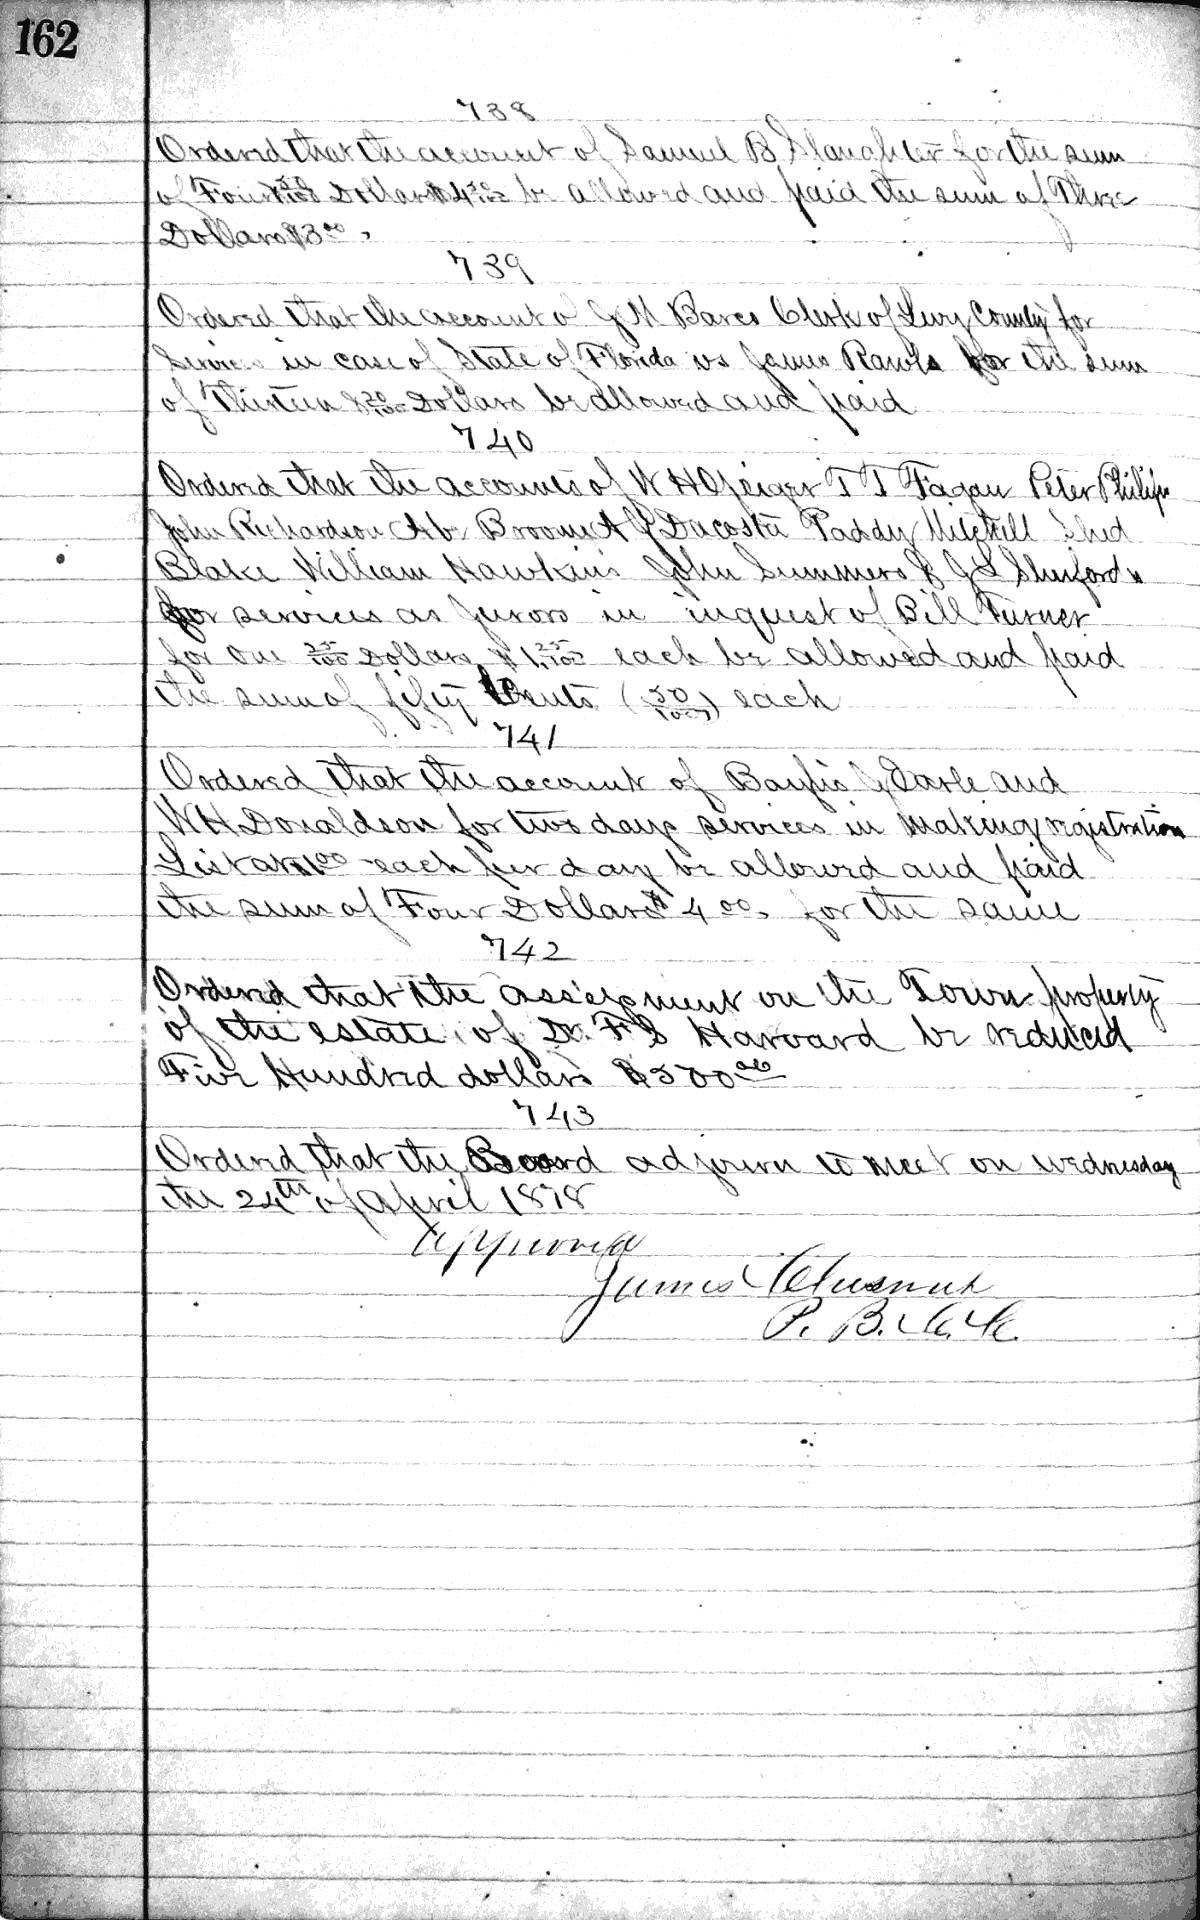 162
738
Ordered that the account of Samuel B Slaughter for the sum
of Four 50/100 Dollars $4 50/100 be allowed and paid the sum of Three
Dollars $3 00.
739
Ordered that the account of J M Barco Clerk of Levy County for
Services in case of State of Florida vs James Rawls for the sum
of Thirteen & 20/100 Dollars be allowed and paid
740
Ordered that the accounts of W H Geiger T T Fagan Peter Philips
John Richardson Abe Broome A J Dacosta Paddy Mitchell Shed
Blake William Hawkins John Summers & J L
for services as Jurors in inquest of Bill Turner
for one 25/100 Dollars $1.25/100 each be allowed and paid
the sum of fifty Cents (50/100) each
741
Ordered that the account of J Earle and
W H Donaldson for two days services in making registration
List at $1 00 each per day be allowed and paid
the sum of Four Dollars $4 00. for the same
742
Ordered that the assessment on the Town property
of the estate of Dr. F S Harvard be reduced
Five Hundred dollars $500 00
743
Ordered that the Board adjourn to meet on wednesday
the 24th of April 1878
Approved
James Chesnut
P. B. C. C.